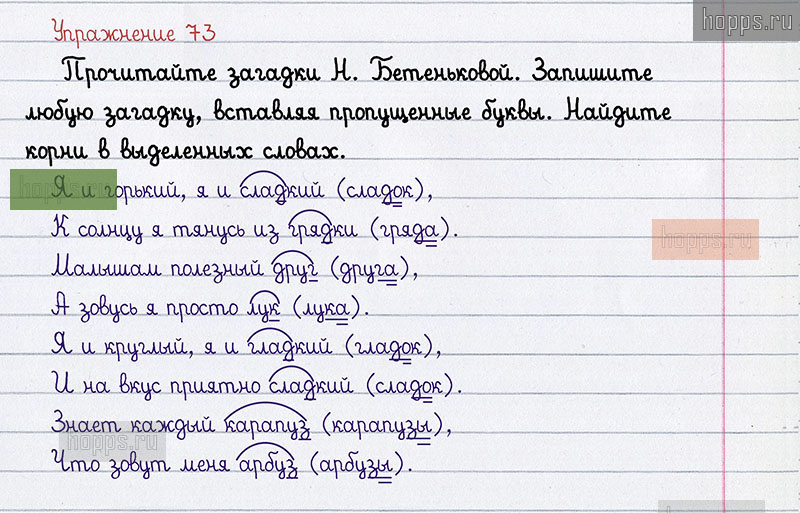 hopps.ru
Упражнение 73
Прочитайте загадки Н. Бетеньковой. Запишите
любую загадку, вставляя пропущенные буквы. Найдите
корни в выделенных словах.
Я и горький, я и сладкий (сладок),
К солнцу я тянусь из грядки (гряда).
Малышам полезный друг (друга),
А зовусь я просто лук (лука).
Я и круглый, я и гладкий (гладок),
И на вкус приятно сладкий (сладок).
Знает каждый карапуз (карапузы),
Что зовут меня арбуз (арбузы).
hopps.ru
hopps.ru
hopps.ru